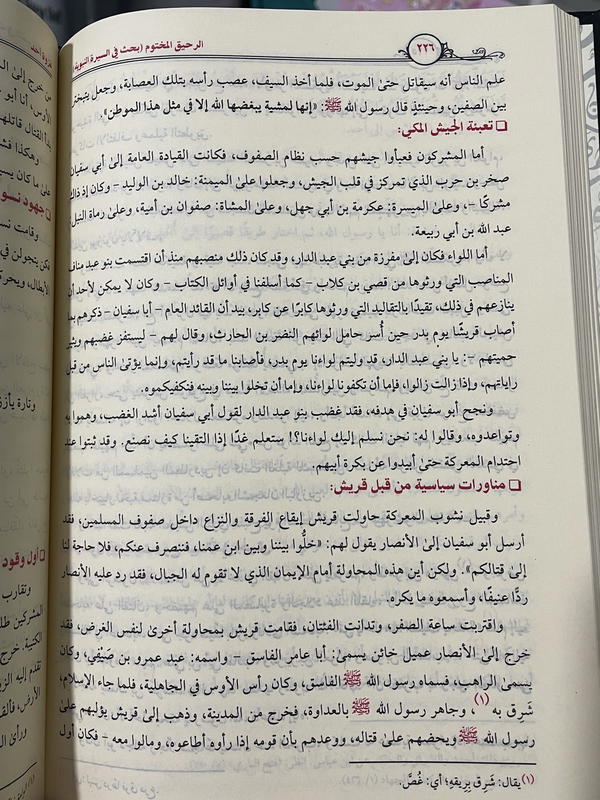 ٢٢٦
الرحيق المختوم (بحث في السيرة النبوية)
علم الناس أنه سيقاتل حتىٰ الموت، فلما أخذ السيف، عصب رأسه بتلك العصابة، وجعل يتبختر
بين الصفين، وحينئذٍ قال رسول الله ﷺ: «إنها لمشية يبغضها الله إلا في مثل هذا الموطن».
❑ تعبئة الجيش المكي:
أما المشركون فعبأوا جيشهم حسب نظام الصفوف، فكانت القيادة العامة إلىٰ أبي سفيان
صخر بن حرب الذي تمركز في قلب الجيش، وجعلوا علىٰ الميمنة: خالد بن الوليد - وكان إذ ذاك
مشركًا -، وعلىٰ الميسرة: عكرمة بن أبي جهل، وعلىٰ المشاة: صفوان بن أمية، وعلىٰ رماة النبل:
عبد الله بن أبي ربيعة.
أما اللواء فكان إلىٰ مفرزة من بني عبد الدار، وقد كان ذلك منصبهم منذ أن اقتسمت بنو عبد مناف
المناصب التي ورثوها من قصي بن كلاب - كما أسلفنا في أوائل الكتاب - وكان لا يمكن لأحد أن
ينازعهم في ذلك، تقيدًا بالتقاليد التي ورثوها كابرًا عن كابر، بيد أن القائد العام - أبا سفيان - ذكرهم بما
أصاب قريشًا يوم بدر حين أُسر حامل لوائهم النضر بن الحارث، وقال لهم - ليستفز غضبهم ويثير
حميتهم -: يا بني عبد الدار، قد وليتم لواءنا يوم بدر، فأصابنا ما قد رأيتم، وإنما يؤتىٰ الناس من قبل
راياتهم، وإذا زالت زالوا، فإما أن تكفونا لواءنا، وإما أن تخلوا بيننا وبينه فنكفيكموه.
ونجح أبو سفيان في هدفه، فقد غضب بنو عبد الدار لقول أبي سفيان أشد الغضب، وهموا به
وتواعدوه، وقالوا له: نحن نسلم إليك لواءنا؟! ستعلم غدًا إذا التقينا كيف نصنع. وقد ثبتوا عند
احتدام المعركة حتىٰ أبيدوا عن بكرة أبيهم.
❑ مناورات سياسية من قبل قريش:
وقبيل نشوب المعركة حاولت قريش إيقاع الفرقة والنزاع داخل صفوف المسلمين، فقد
أرسل أبو سفيان إلىٰ الأنصار يقول لهم: «خلُّوا بيننا وبين ابن عمنا، فننصرف عنكم، فلا حاجة لنا
إلىٰ قتالكم». ولكن أين هذه المحاولة أمام الإيمان الذي لا تقوم له الجبال، فقد رد عليه الأنصار
ردًّا عنيفًا، وأسمعوه ما يكره.
واقتربت ساعة الصفر، وتدانت الفئتان، فقامت قريش بمحاولة أخرىٰ لنفس الغرض، فقد
خرج إلىٰ الأنصار عميل خائن يسمىٰ: أبا عامر الفاسق - واسمه: عبد عمرو بن صَيْفِي، وكان
يسمىٰ الراهب، فسماه رسول الله ﷺ الفاسق، وكان رأس الأوس في الجاهلية، فلما جاء الإسلام،
شَرِق به (١)، وجاهر رسول الله ﷺ بالعداوة، فخرج من المدينة، وذهب إلىٰ قريش يؤلبهم علىٰ
رسول الله ﷺ ويحضهم علىٰ قتاله، ووعدهم بأن قومه إذا رأوه أطاعوه، ومالوا معه - فكان أول
(١) يقال: شَرِق بِرِيقِهِ؛ أي: غُصَّ.